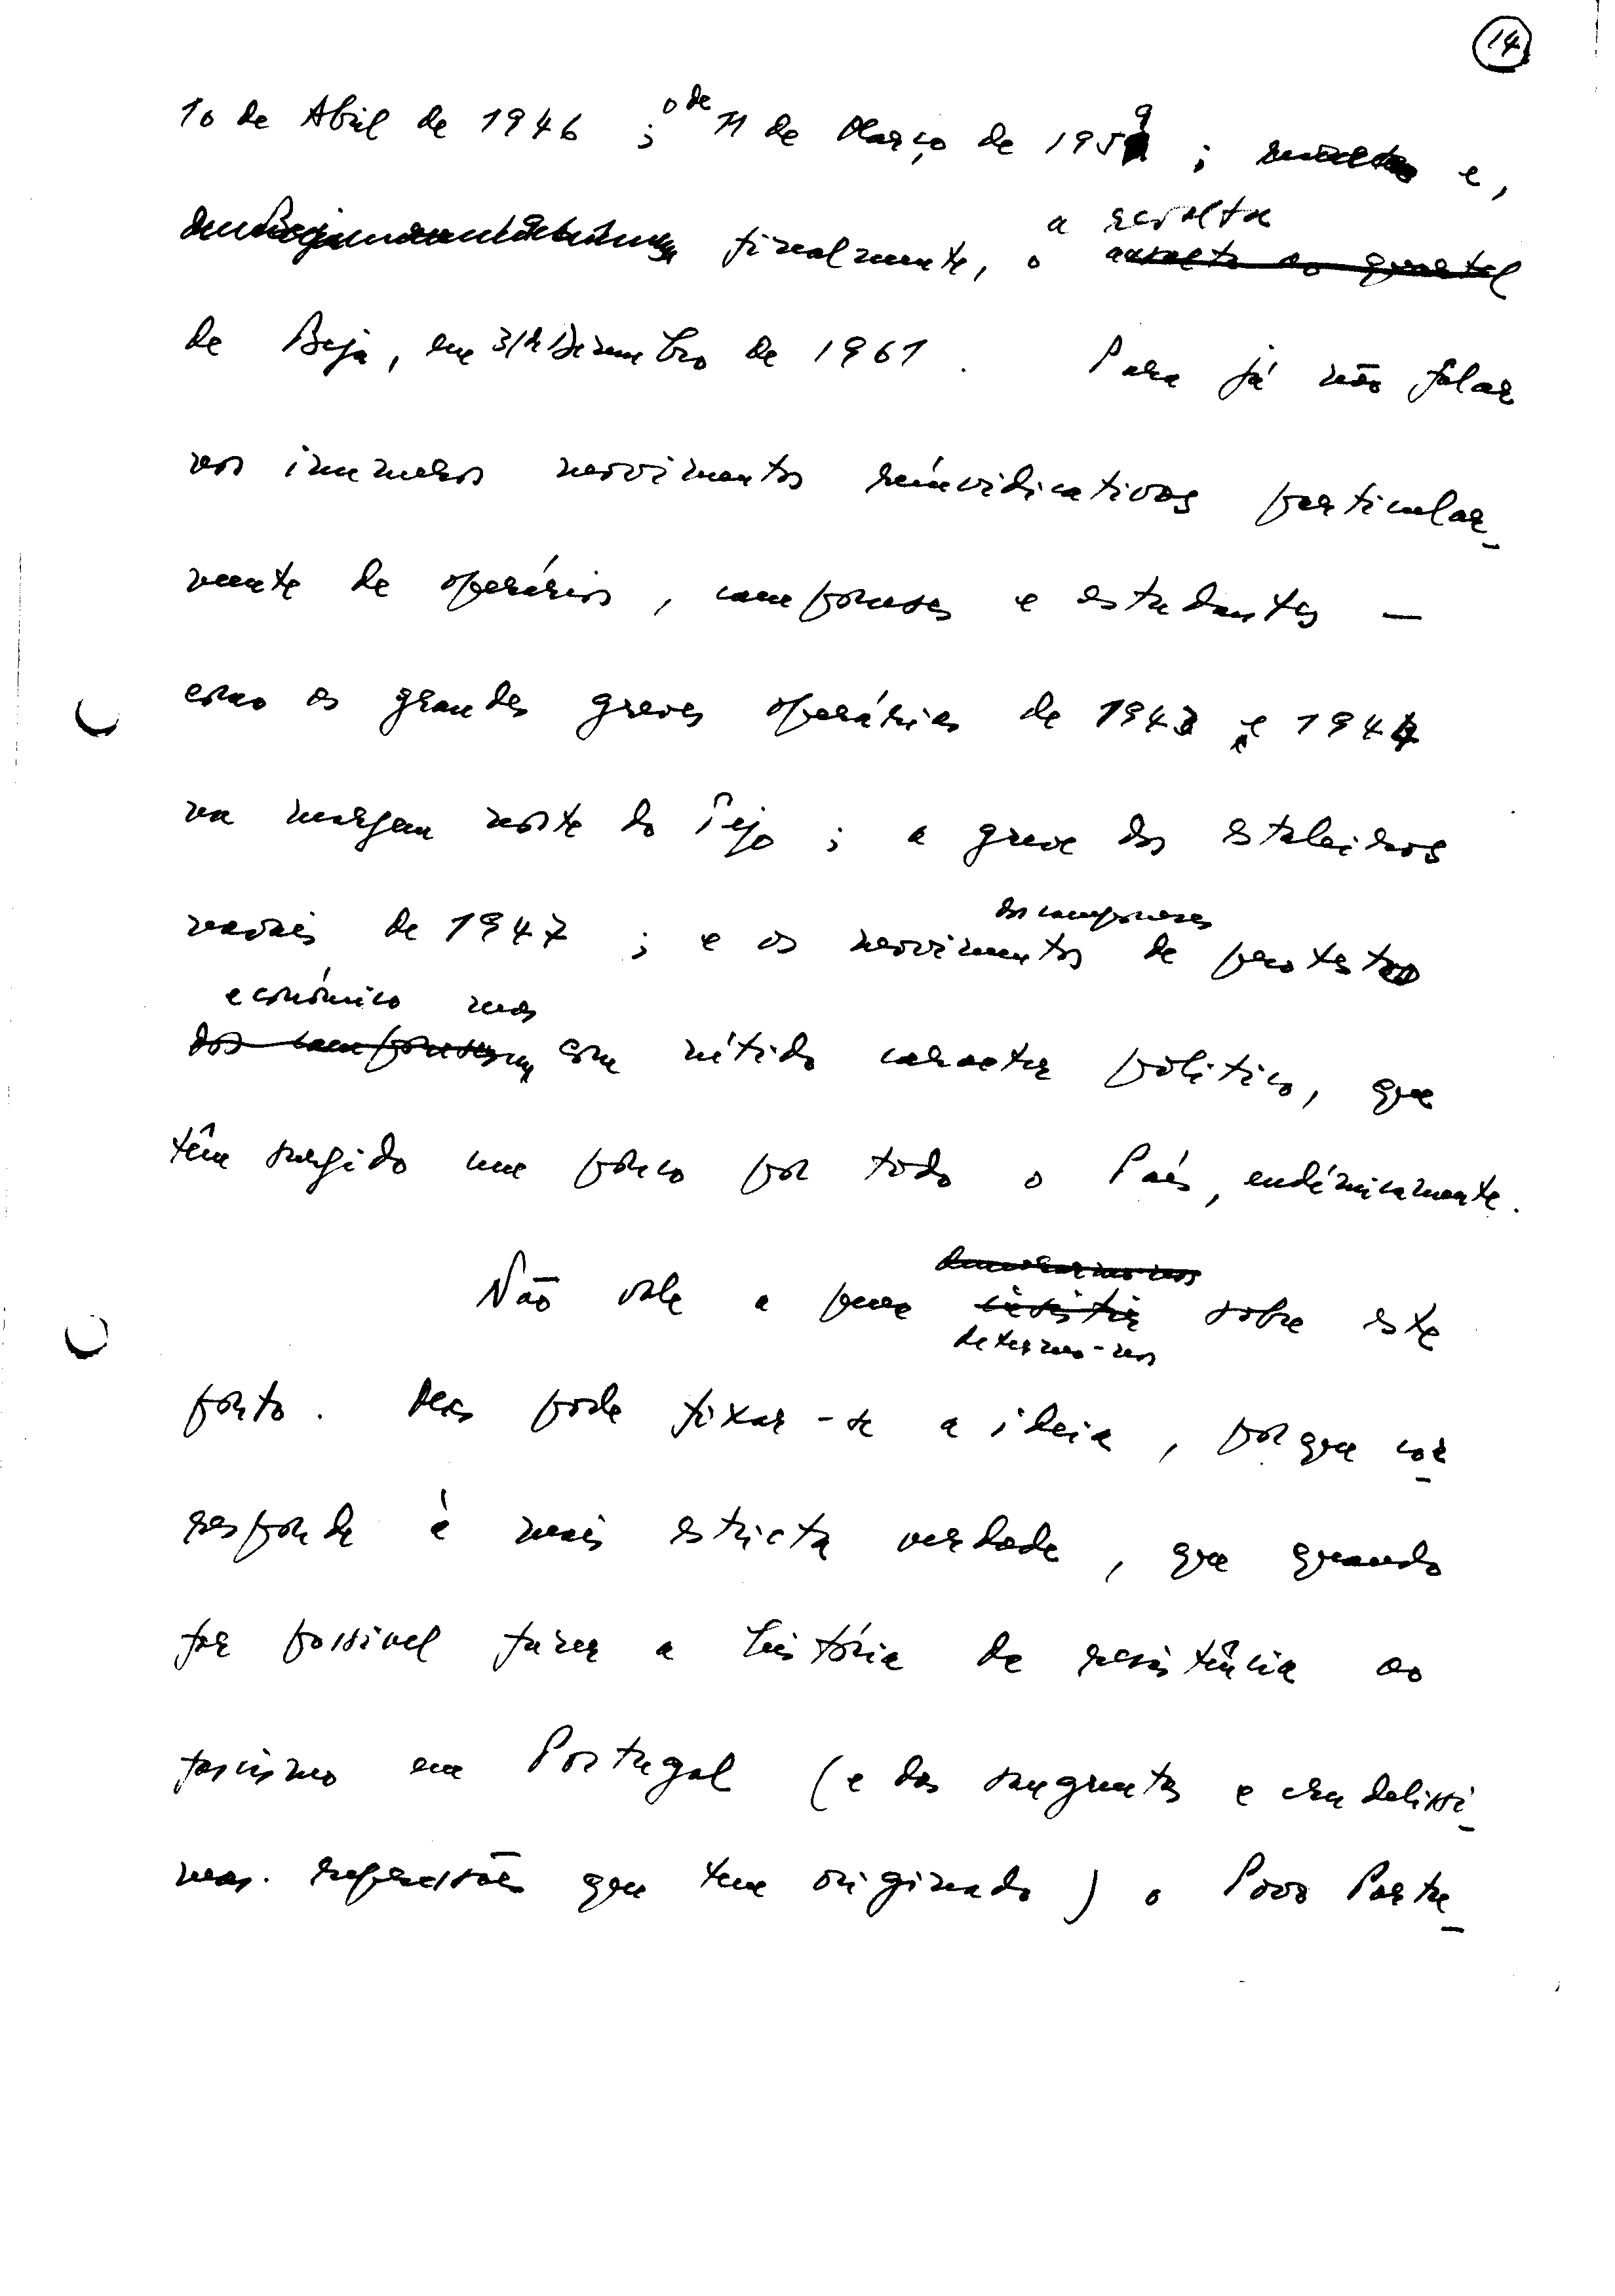 14
10 de Abril de 1946 ; o de 11 de Março de 1959 ; e,
finalmente, o a revolta assalto ao quartel
de Beja, em 31 de Dezembro de 1961. Para já não falar
nos inumeros movimentos reinvidicativos particular-
mente de operários, camponeses e estudantes —
como as grandes greves operárias de 1943 e 1944
na margem norte do Tejo ; a greve dos estaleiros
navais de 1947 ; e os movimentos dos camponeses de protesto
económico mas
dos camponeses, com nítido caracter politico, que
têm surgido um pouco por todo o País, endémicamente.
Não vale a pena insistir sobre este
determo-nos
ponto. Mas pode fixar-se a ideia, porque cor-
responde à mais estricta verdade, que quando
for possivel fazer a história da resistência ao
fascismo em Portugal (e das sangrentas e crudelissi-
mas repressões que tem originado) o Povo Portu-